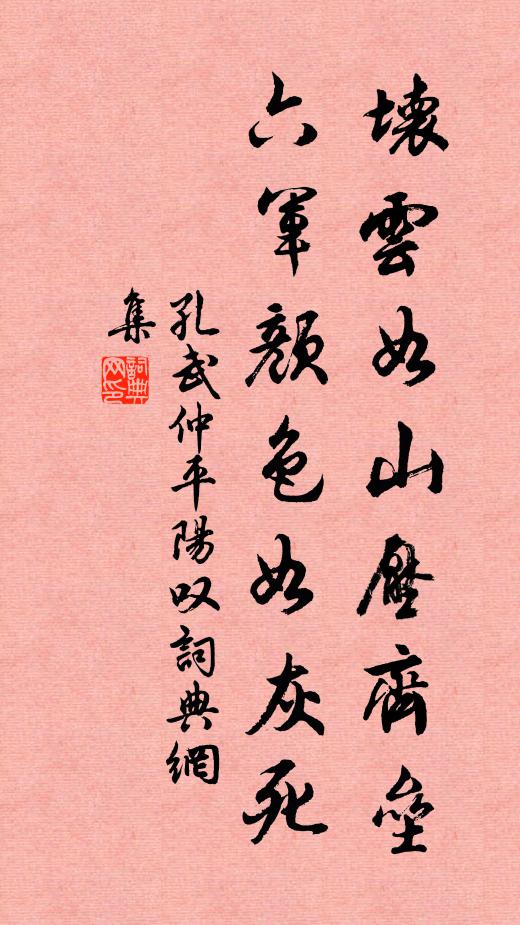 壞雲如山壓齊壘
六軍顏色如灰死
孔武仲平陽叹詞典網
集
詞典网印